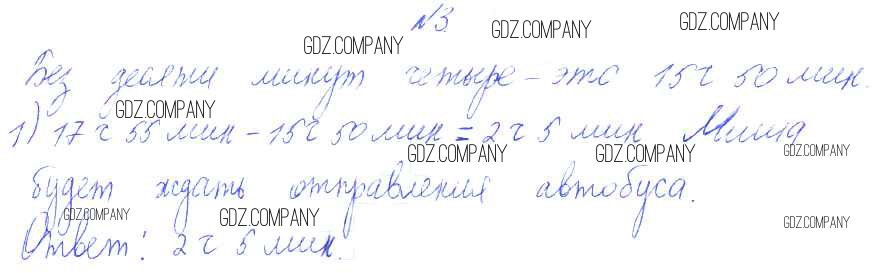 №3.
GDZ.COMPANY GDZ.COMPANY GDZ.COMPANY
Без десяти минут четыре - это 15 ч 50 мин.
GDZ.COMPANY
1) 17 ч 55 мин - 15 ч 50 мин = 2 ч 5 мин Миша
GDZ.COMPANY GDZ.COMPANY GDZ.COMPANY
будет ждать отправления автобуса.
GDZ.COMPANY GDZ.COMPANY GDZ.COMPANY
Ответ: 2 ч 5 мин.